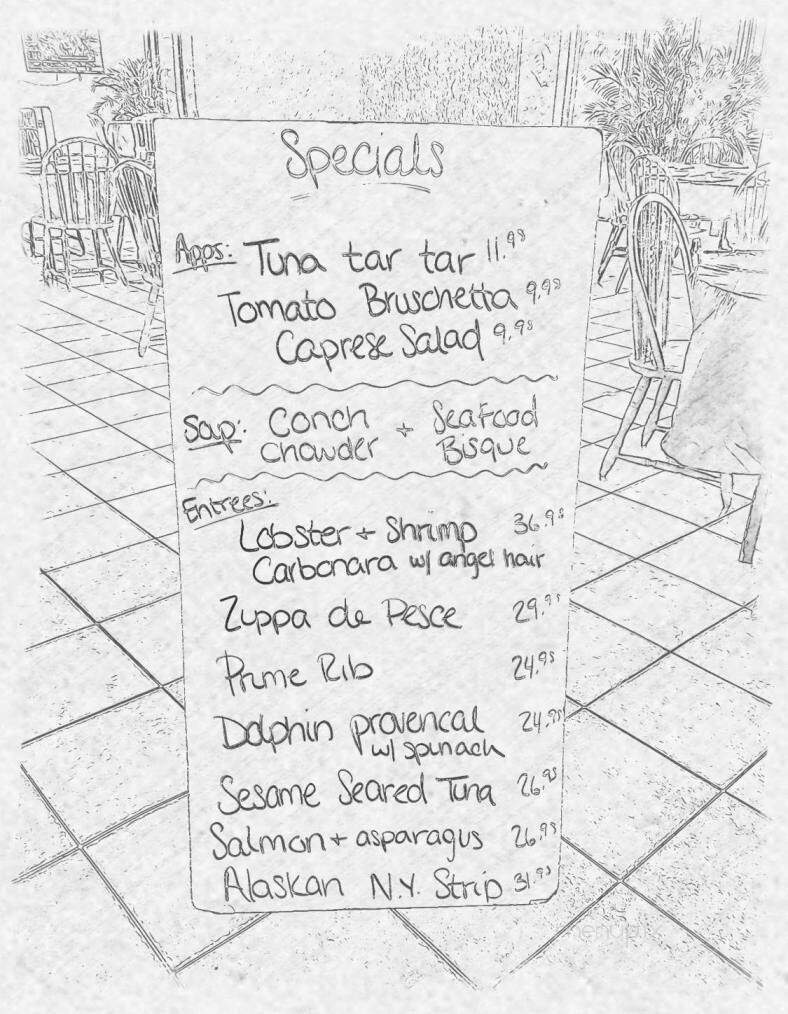 Specials
Apps: Tuna tar tar 11.95
Tomato Bruschetta 9.95
Caprese Salad 9.95
Soup: Conch + Seafood
chowder Bisque
Entrees:
Lobster + Shrimp 36.95
Carbonara w/ angel hair
Zuppa de Pesce 29.95
Prime Rib 24.95
Dolphin provencal 24.95
w/ spinach
Sesame Seared Tuna 26.95
Salmon + asparagus 26.95
Alaskan N.Y. Strip 31.95